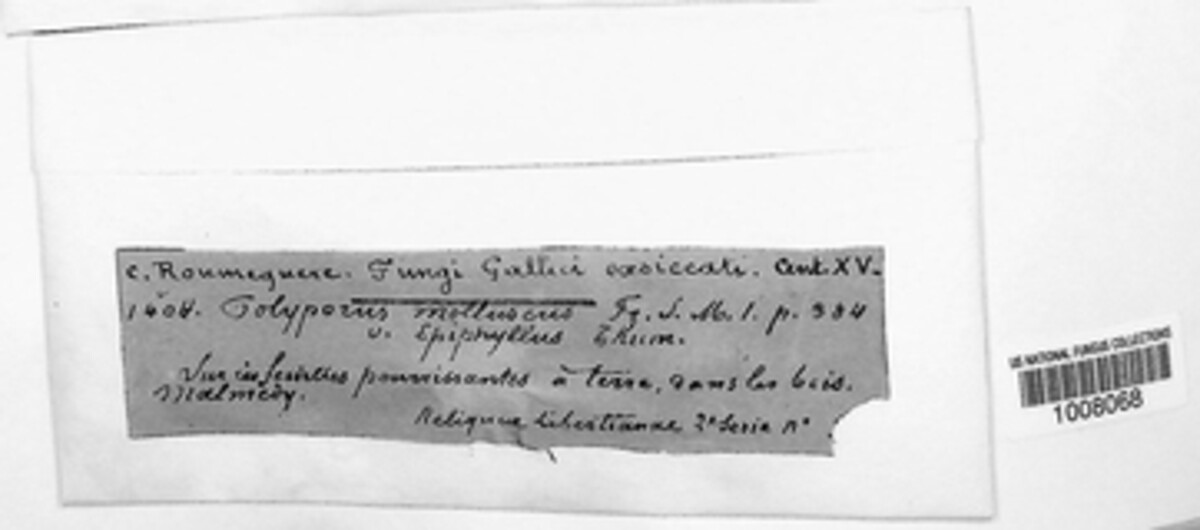 C. Roumeguere. Fungi Gallici exsiccati. Cent. XV.
1404. Polyporus molluscus Fr. S. M. 1. p. 384
v. Epiphyllus Thum.
Sur les feuilles pourrissantes à terre, dans les bois.
Malmedy.
Reliquiae Libertianae 2e Serie No
US NATIONAL FUNGUS COLLECTIONS
1008068